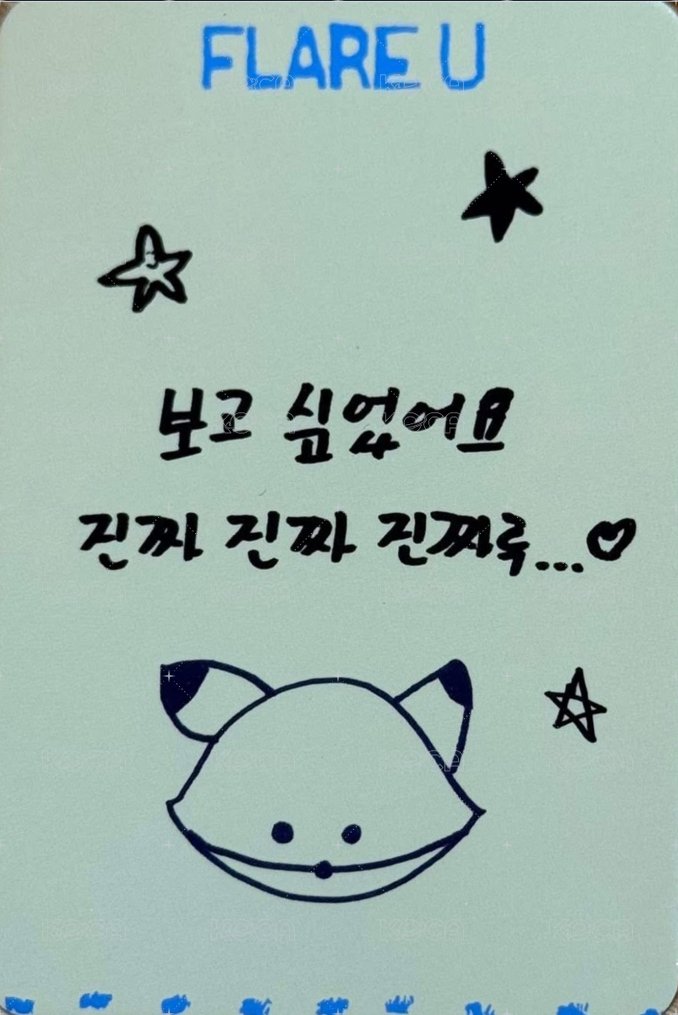 FLARE U
보고 싶었어요
진짜 진짜 진짜루...♡